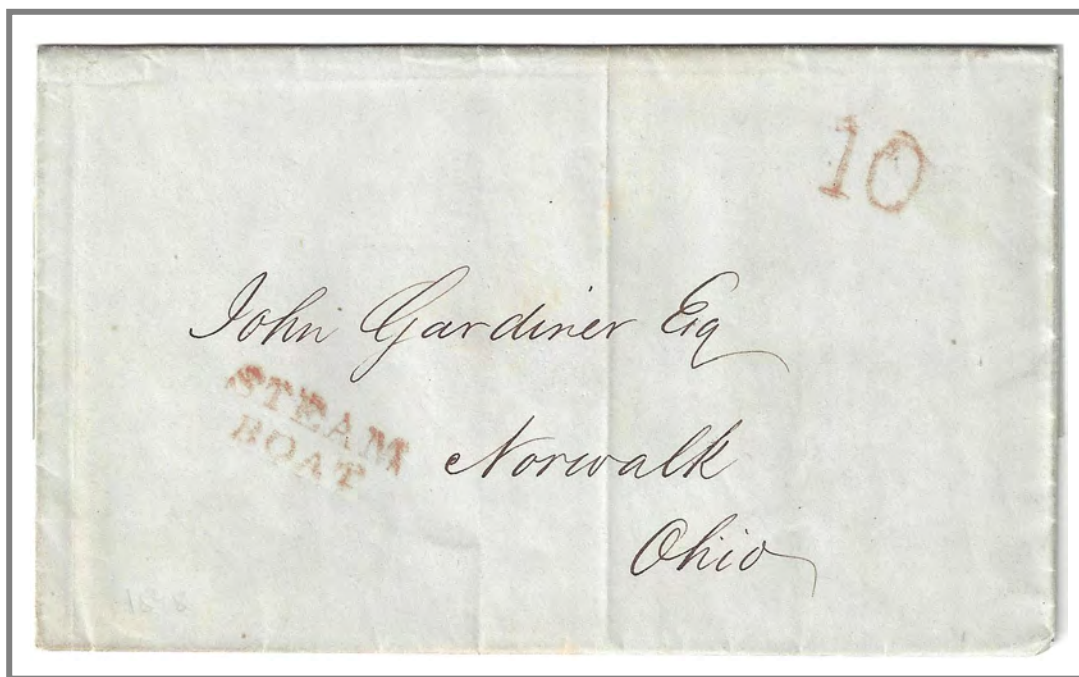 10
John Gardiner Esq
STEAM
BOAT
Norwalk
Ohio